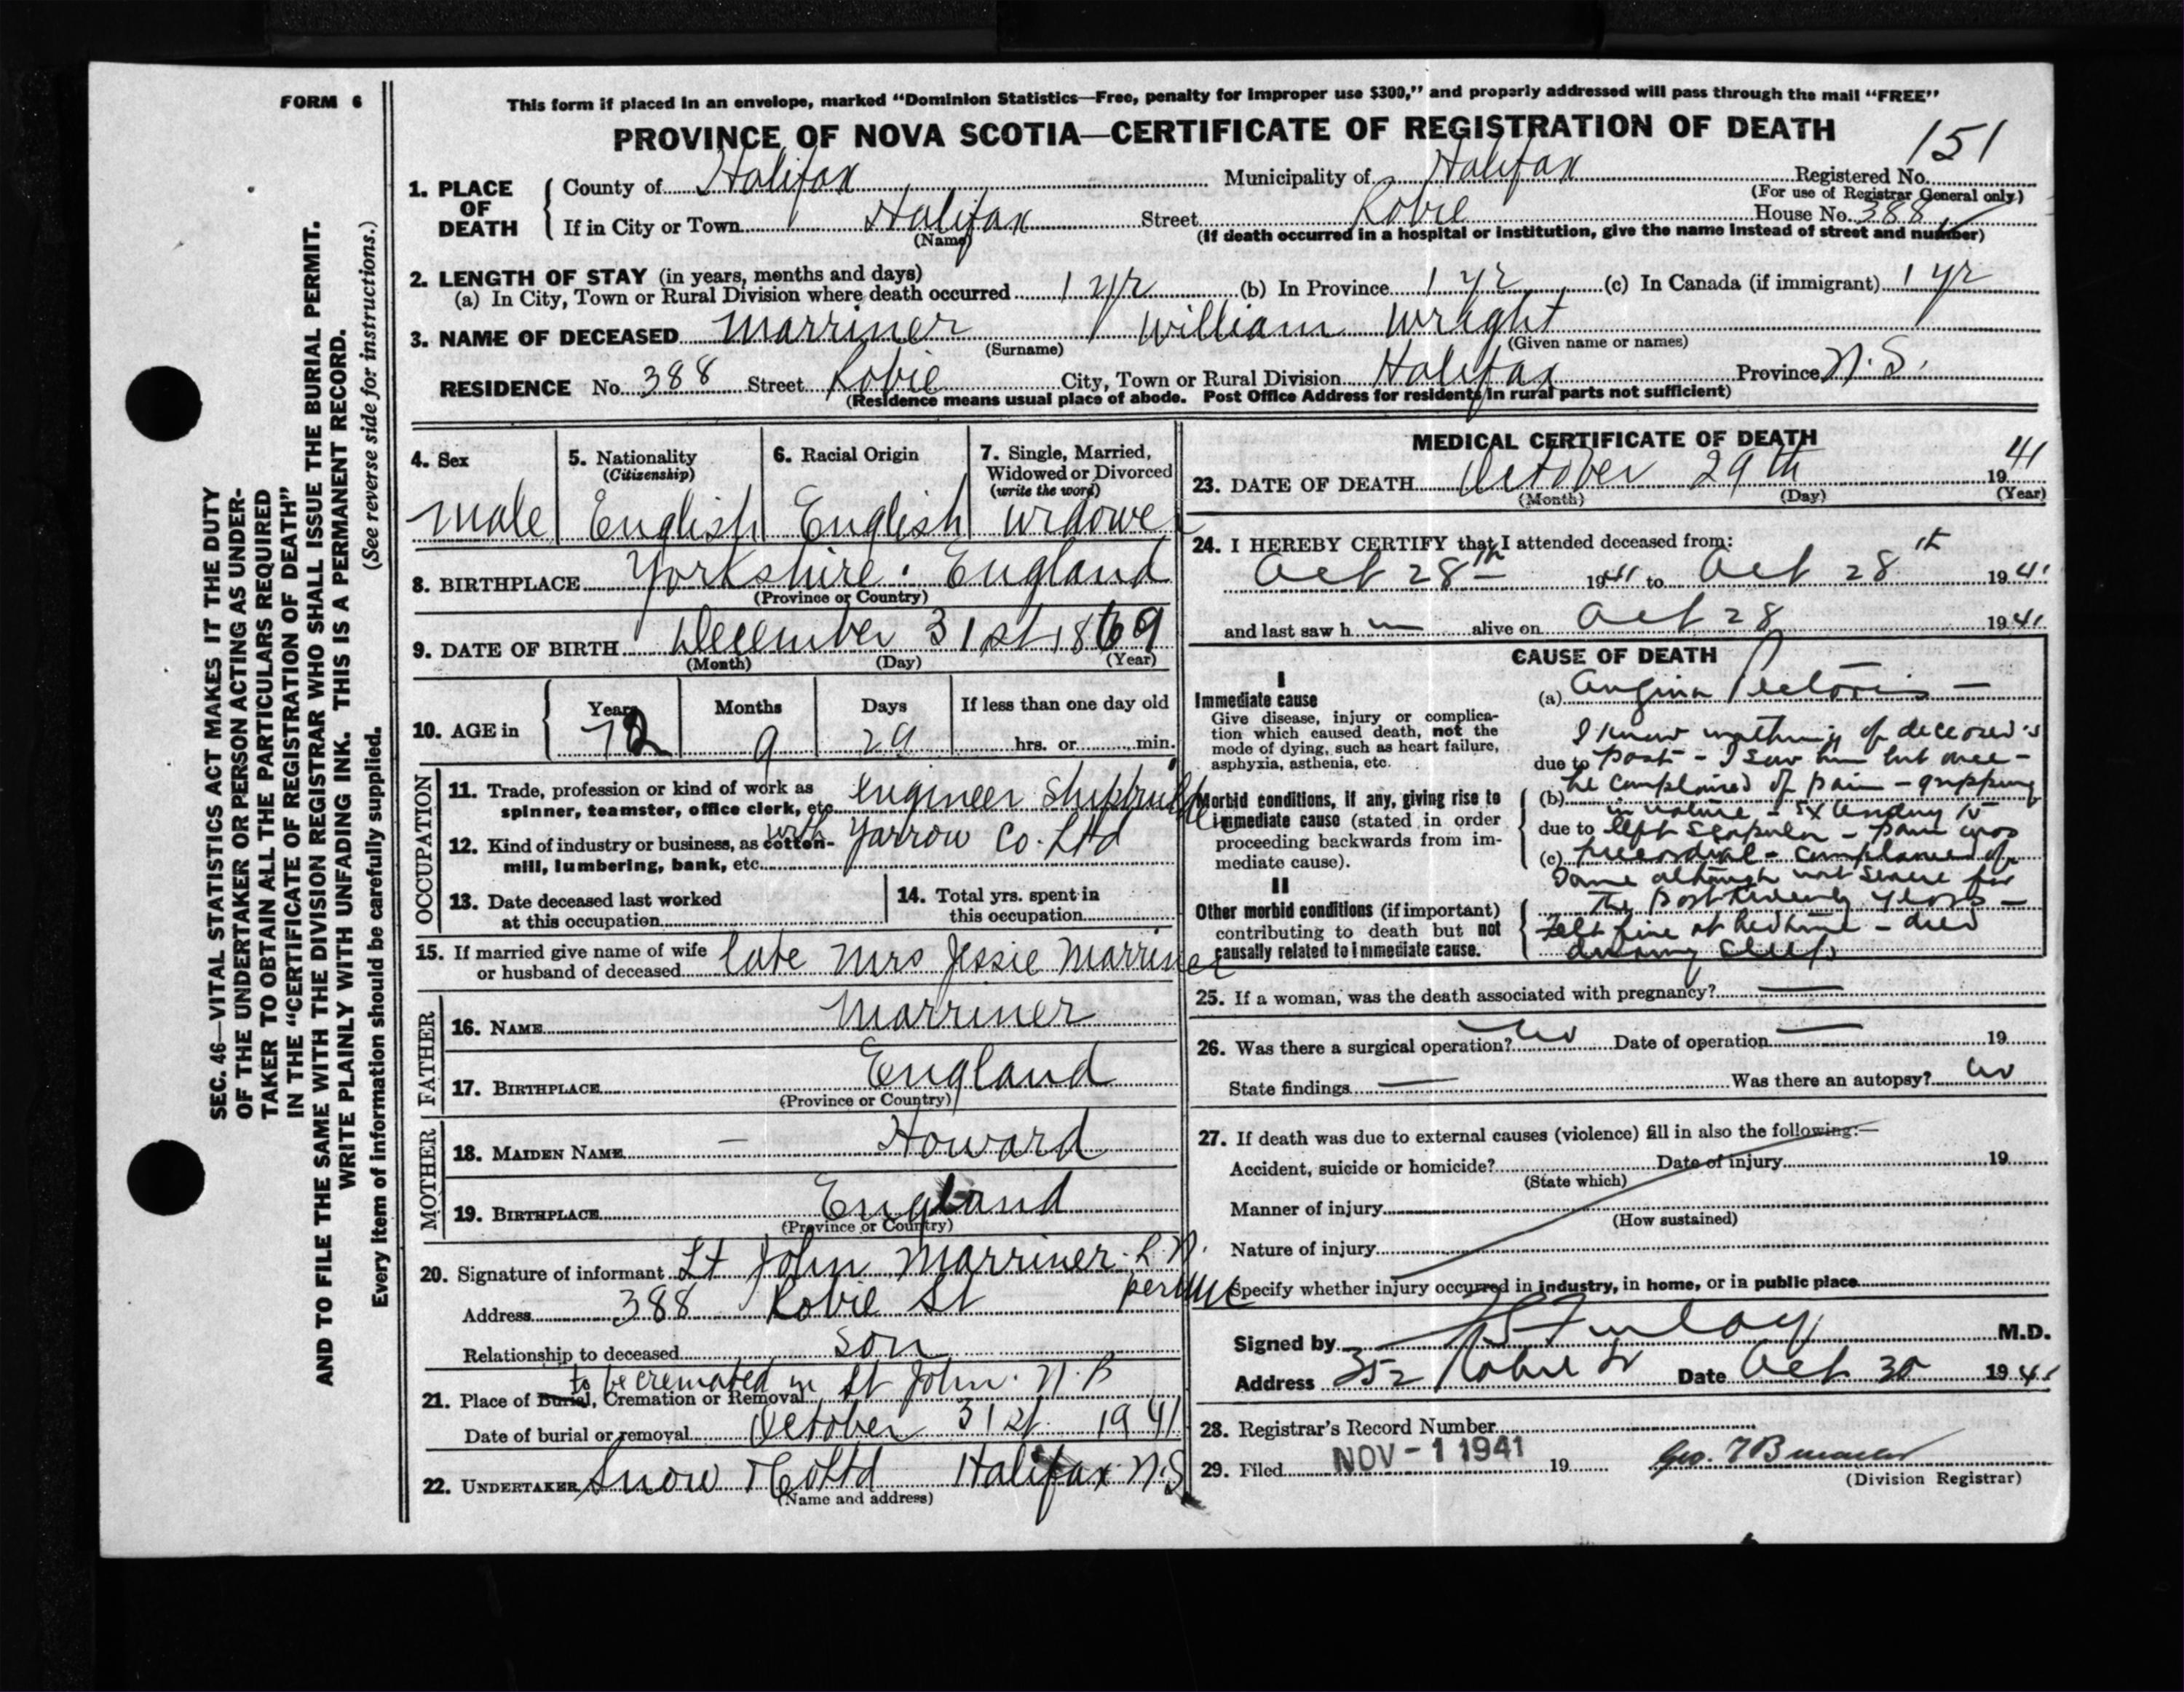 FORM 6
This form if placed in an envelope, marked "Dominion Statistics—Free, penalty for improper use $300," and properly addressed will pass through the mail "FREE"
PROVINCE OF NOVA SCOTIA—CERTIFICATE OF REGISTRATION OF DEATH
151
1. PLACE OF DEATH
County of Halifax Municipality of Halifax Registered No.
(For use of Registrar General only)
If in City or Town Halifax Street Robie House No. 388
(Name) (If death occurred in a hospital or institution, give the name instead of street and number)
2. LENGTH OF STAY (in years, months and days)
(a) In City, Town or Rural Division where death occurred 1 yr (b) In Province 1 yr (c) In Canada (if immigrant) 1 yr
3. NAME OF DECEASED Marriner William Wright
(Surname) (Given name or names)
RESIDENCE No. 388 Street Robie City, Town or Rural Division Halifax Province N.S.
(Residence means usual place of abode. Post Office Address for residents in rural parts not sufficient)
4. Sex
male
5. Nationality
(Citizenship)
English
6. Racial Origin
English
7. Single, Married,
Widowed or Divorced
(write the word)
widower
8. BIRTHPLACE Yorkshire. England
(Province or Country)
9. DATE OF BIRTH December 31st 1869
(Month) (Day) (Year)
10. AGE in
Years Months Days If less than one day old
9 29 hrs. or min.
OCCUPATION
11. Trade, profession or kind of work as
spinner, teamster, office clerk, etc. engineer Shipbuilder
12. Kind of industry or business, as cotton-
mill, lumbering, bank, etc. with Yarrow Co. Ltd
13. Date deceased last worked
at this occupation
14. Total yrs. spent in
this occupation
15. If married give name of wife
or husband of deceased late Mrs Jessie Marriner
FATHER
16. NAME Marriner
17. BIRTHPLACE England
(Province or Country)
MOTHER
18. MAIDEN NAME — Howard
19. BIRTHPLACE England
(Province or Country)
20. Signature of informant Lt John Marriner R.N.
Address 388 Robie St
Relationship to deceased son
to be cremated in St John. N.B
21. Place of Burial, Cremation or Removal
Date of burial or removal October 31st 1941
22. UNDERTAKER Snow & Co Ltd Halifax N.S
(Name and address)
MEDICAL CERTIFICATE OF DEATH
23. DATE OF DEATH October 29th 1941
(Month) (Day) (Year)
24. I HEREBY CERTIFY that I attended deceased from:
Oct 28th 1941 to Oct 28th 1941
and last saw h m alive on Oct 28 1941
CAUSE OF DEATH
I
Immediate cause
Give disease, injury or complica-
tion which caused death, not the
mode of dying, such as heart failure,
asphyxia, asthenia, etc.
Morbid conditions, if any, giving rise to
immediate cause (stated in order
proceeding backwards from im-
mediate cause).
II
Other morbid conditions (if important)
contributing to death but not
causally related to immediate cause.
(a) Angina Pectoris —
I know nothing of deceased's
due to past - I saw him but once -
(b) he complained of pain - gripping
in nature - extending to
due to left scapula - pain
(c) precordial - complained of
same although not severe for
the past years -
Felt fine at bedtime - died
during sleep.
25. If a woman, was the death associated with pregnancy? —
26. Was there a surgical operation? no Date of operation — 19
State findings — Was there an autopsy? no
27. If death was due to external causes (violence) fill in also the following:—
Accident, suicide or homicide? Date of injury 19
(State which)
Manner of injury
(How sustained)
Nature of injury
Specify whether injury occurred in industry, in home, or in public place
Signed by Finlay M.D.
Address 352 Robie St Date Oct 30 1941
28. Registrar's Record Number
29. Filed NOV - 1 1941 19
(Division Registrar)
SEC. 46—VITAL STATISTICS ACT MAKES IT THE DUTY
OF THE UNDERTAKER OR PERSON ACTING AS UNDER-
TAKER TO OBTAIN ALL THE PARTICULARS REQUIRED
IN THE "CERTIFICATE OF REGISTRATION OF DEATH"
AND TO FILE THE SAME WITH THE DIVISION REGISTRAR WHO SHALL ISSUE THE BURIAL PERMIT.
WRITE PLAINLY WITH UNFADING INK. THIS IS A PERMANENT RECORD.
(See reverse side for instructions.)
Every item of information should be carefully supplied.